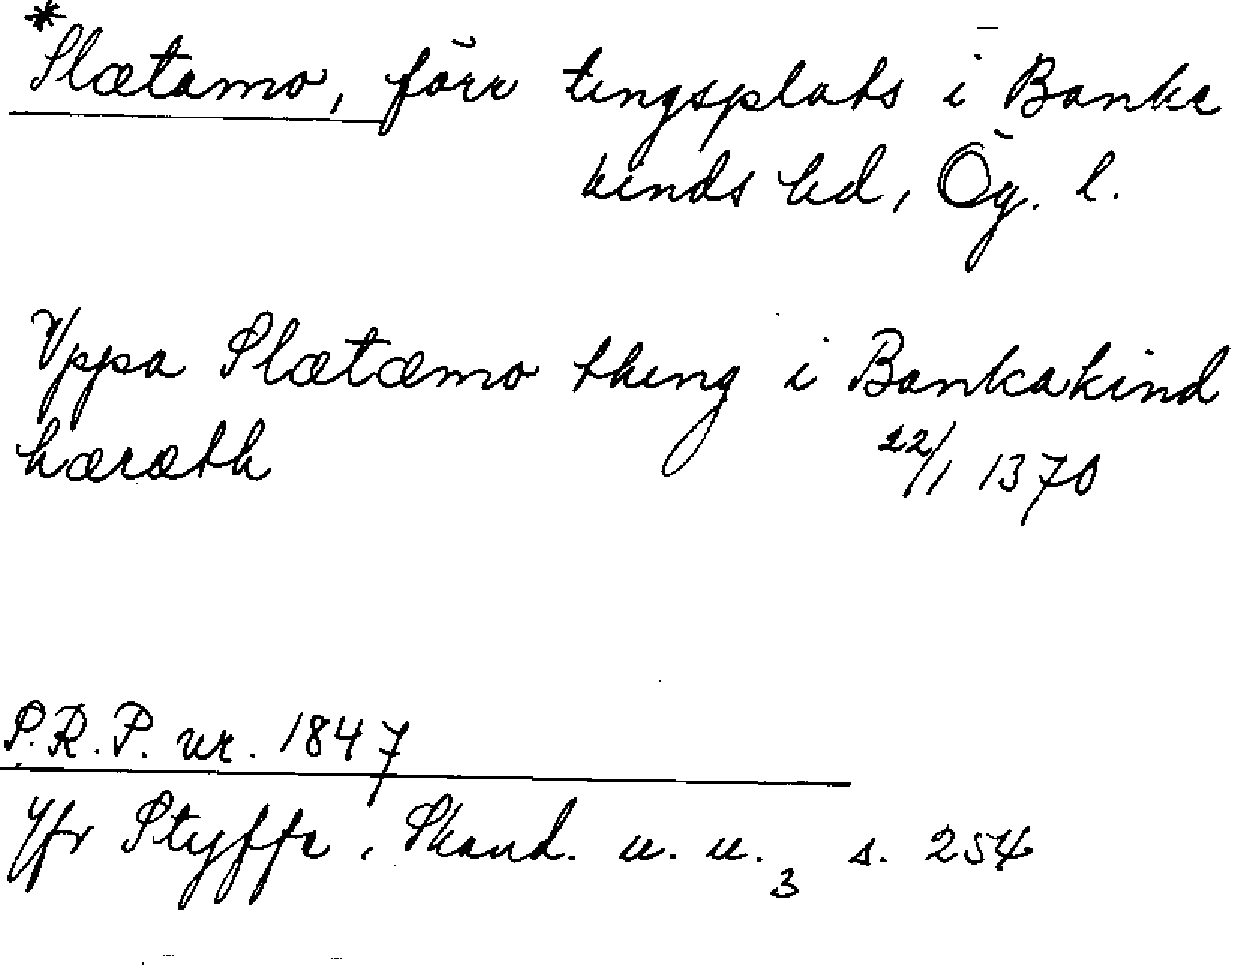 *Slætamo, förr tingsplats i Banke
kinds hd, Ög. l.
Vppa Slætæmo thing i Bankakind
hæræth 22/1 1370
P.R.P. nr. 1847
Jfr Styffe, Skand. u. u. 3 s. 254